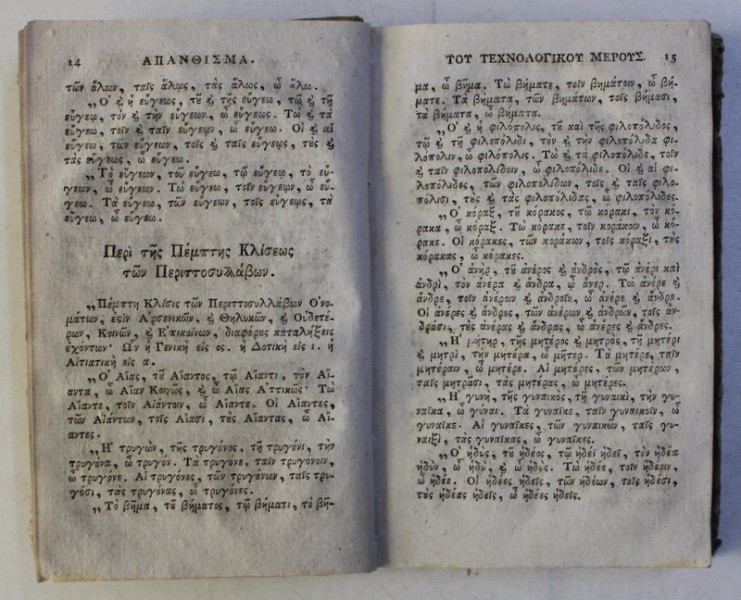 14 ΑΠΑΝΘΙΣΜΑ.
τῶν ἅλων, ταῖς ἅλως, τὰς ἅλως, ὦ ἅλω.
„Ὁ ϗ ἡ εὔγεως, τȣ͂ ϗ τῆς εὔγεω, τῷ ϗ τῇ
εὔγεῳ, τὸν ϗ τὴν εὔγεων, ὦ εὔγεως. Τὼ ϗ τὰ
εὔγεω, τοῖν ϗ ταῖν εὔγεῳν, ὦ εὔγεω. Οἱ ϗ αἱ
εὔγεῳ, τῶν εὔγεων, τοῖς ϗ ταῖς εὔγεῳς, τȣ̀ς ϗ
τὰς εὔγεως, ὦ εὔγεῳ.
„Τὸ εὔγεων, τȣ͂ εὔγεω, τῷ εὔγεῳ, τὸ εὔ-
γεων, ὦ εὔγεων. Τὼ εὔγεω, τοῖν εὔγεῳν, ὦ εὔ-
γεω. Τὰ εὔγεω, τῶν εὔγεων, τοῖς εὔγεῳς, τὰ
εὔγεω, ὦ εὔγεω.
Περὶ τῆς Πέμπτης Κλίσεως
τῶν Περιττοσυλλάβων.
„Πέμπτη Κλίσις τῶν Περιττοσυλλάβων Ὀνο-
μάτων, ἐϛὶν Ἀρσενικῶν, ϗ Θηλυκῶν, ϗ Οὐδετέ-
ρων, Κοινῶν, ϗ Ἐπικοίνων, διαφόρȣς καταλήξεις
ἐχόντων· Ὧν ἡ Γενικὴ εἰς ος. ἡ Δοτικὴ εἰς ι. ἡ
Αἰτιατικὴ εἰς α.
„Ὁ Αἴας, τȣ͂ Αἴαντος, τῷ Αἴαντι, τὸν Αἴ-
αντα, ὦ Αἶαν Κοινῶς, ϗ ὦ Αἴας Ἀττικῶς· Τὼ
Αἴαντε, τοῖν Αἰάντοιν, ὦ Αἴαντε. Οἱ Αἴαντες,
τῶν Αἰάντων, τοῖς Αἴασι, τȣ̀ς Αἴαντας, ὦ Αἴ-
αντες.
„Ἡ τρυγὼν, τῆς τρυγόνος, τῇ τρυγόνι, τὴν
τρυγόνα, ὦ τρυγον. Τὰ τρυγόνε, ταῖν τρυγόνοιν,
ὦ τρυγόνε. Αἱ τρυγόνες, τῶν τρυγόνων, ταῖς τρυ-
γόσι, τὰς τρυγόνας, ὦ τρυγόνες.
„Τὸ βῆμα, τȣ͂ βήματος, τῷ βήματι, τὸ βῆ-
ΤΟΥ ΤΕΧΝΟΛΟΓΙΚΟΥ ΜΕΡΟΥΣ. 15
μα, ὦ βῆμα. Τὼ βήματε, τοῖν βημάτοιν, ὦ βή-
ματε. Τὰ βήματα, τῶν βημάτων, τοῖς βήμασι,
τὰ βήματα, ὦ βήματα.
„Ὁ ϗ ἡ φιλόπολις, τȣ͂ καὶ τῆς φιλοπόλιδος,
τῷ ϗ τῇ φιλοπόλιδι, τὸν ϗ τὴν φιλοπόλιδα φι-
λόπολιν, ὦ φιλόπολις. Τὼ ϗ τὰ φιλοπόλιδε, τοῖν
ϗ ταῖν φιλοπολίδοιν, ὦ φιλοπόλιδε. Οἱ ϗ αἱ φι-
λοπόλιδες, τῶν φιλοπολίδων, τοῖς ϗ ταῖς φιλο-
πόλισι, τȣ̀ς ϗ τὰς φιλοπόλιδας, ὦ φιλοπόλιδες.
„Ὁ κόραξ, τȣ͂ κόρακος, τῷ κόρακι, τὸν κό-
ρακα, ὦ κόραξ. Τὼ κόρακε, τοῖν κοράκοιν, ὦ κό-
ρακε. Οἱ κόρακες, τῶν κοράκων, τοῖς κόραξι, τȣ̀ς
κόρακας, ὦ κόρακες.
„Ὁ ἀνὴρ, τȣ͂ ἀνέρος ϗ ἀνδρὸς, τῷ ἀνέρι καὶ
ἀνδρὶ, τὸν ἀνέρα ϗ ἄνδρα, ὦ ἄνερ. Τὼ ἀνέρε ϗ
ἄνδρε, τοῖν ἀνέροιν ϗ ἀνδροῖν, ὦ ἀνέρε ϗ ἄνδρε.
Οἱ ἀνέρες ϗ ἄνδρες, τῶν ἀνέρων ϗ ἀνδρῶν, τοῖς ἀν-
δράσι, τȣ̀ς ἀνέρας ϗ ἄνδρας, ὦ ἀνέρες ϗ ἄνδρες.
„Ἡ μήτηρ, τῆς μητέρος ϗ μητρὸς, τῇ μητέρι
ϗ μητρὶ, τὴν μητέρα, ὦ μῆτερ. Τὰ μητέρε, ταῖν
μητέραιν, ὦ μητέρε. Αἱ μητέρες, τῶν μητέρων,
ταῖς μητράσι, τὰς μητέρας, ὦ μητέρες.
„Ἡ γυνὴ, τῆς γυναικὸς, τῇ γυναικὶ, τὴν γυ-
ναῖκα, ὦ γύναι. Τὰ γυναῖκε, ταῖν γυναικοῖν, ὦ
γυναῖκε. Αἱ γυναῖκες, τῶν γυναικῶν, ταῖς γυ-
ναιξὶ, τὰς γυναῖκας, ὦ γυναῖκες.
„Ὁ ἡδὺς, τȣ͂ ἡδέος, τῷ ἡδέϊ ἡδεῖ, τὸν ἡδέα
ἡδὺν, ὦ ἡδὺ, ϗ ὦ ἡδύς. Τὼ ἡδέε, τοῖν ἡδέοιν,
ὦ ἡδέε. Οἱ ἡδέες ἡδεῖς, τῶν ἡδέων, τοῖς ἡδέσι,
τȣ̀ς ἡδέας ἡδεῖς, ὦ ἡδέες ἡδεῖς.